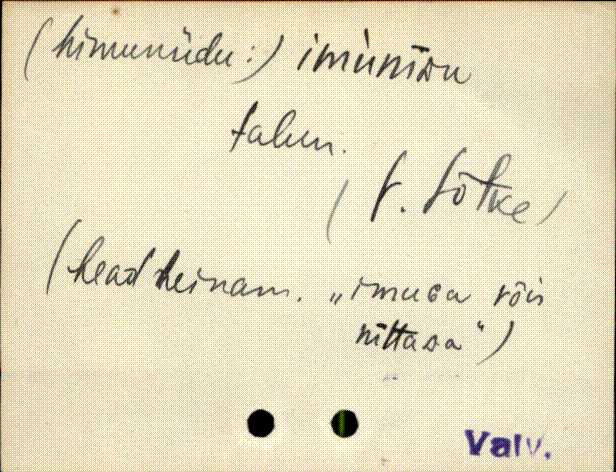 (himuniidu:) imuniidu
talun.
( V. Sõtke)
(head heinam. „imuga võis
nittasa")
Valv.